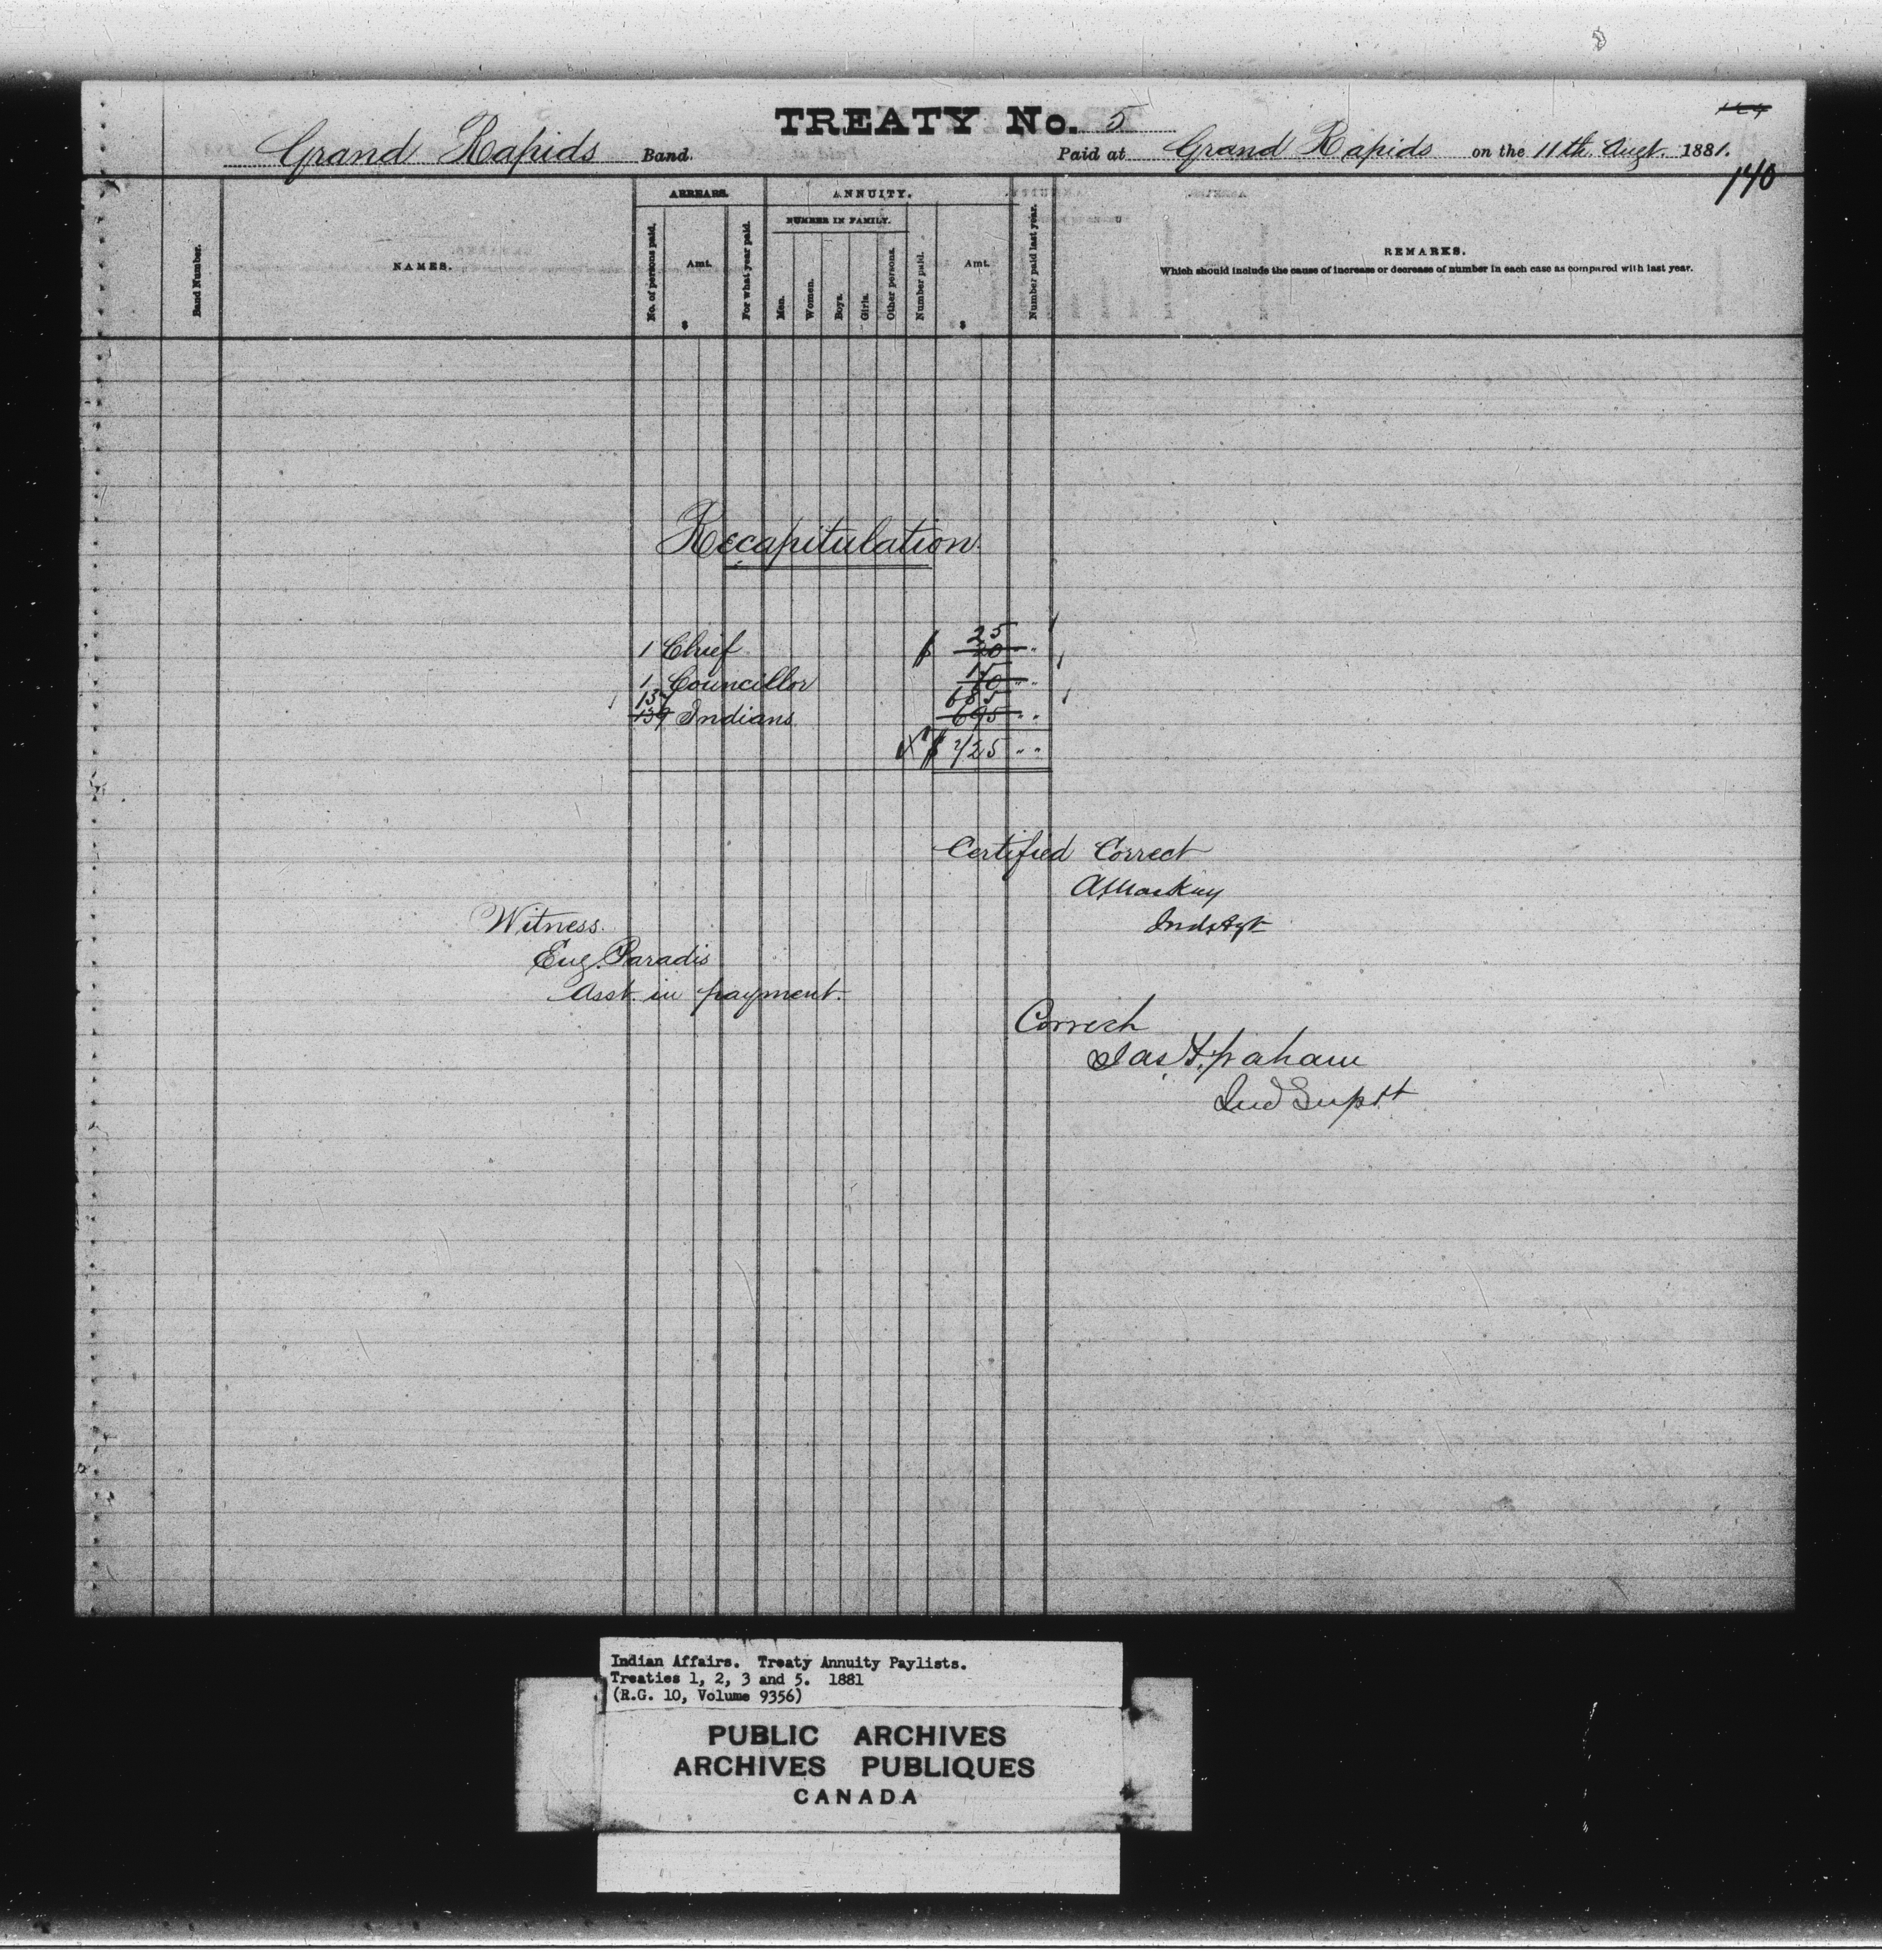 TREATY No. 5
Grand Rapids Band. Paid at Grand Rapids on the 11th. Augt. 1881.
140
ARREARS. ANNUITY.
NUMBER IN FAMILY.
Band Number.
NAMES.
No. of persons paid.
Amt.
$
For what year paid.
Men.
Women.
Boys.
Girls.
Other persons.
Number paid.
Amt.
$
Number paid last year.
REMARKS.
Which should include the cause of increase or decrease of number in each case as compared with last year.
Recapitulation
25
1 Chief $ 20 " "
15
1 Councillor 10 " "
137 685
139 Indians 695 " "
$ 725 " "
Certified Correct
A Mackay
Ind. Agt
Witness.
Eug. Paradis
Asst. in payment.
Correct
Jas. F. Graham
Ind Suptt
Indian Affairs. Treaty Annuity Paylists.
Treaties 1, 2, 3 and 5. 1881
(R.G. 10, Volume 9356)
PUBLIC ARCHIVES
ARCHIVES PUBLIQUES
CANADA